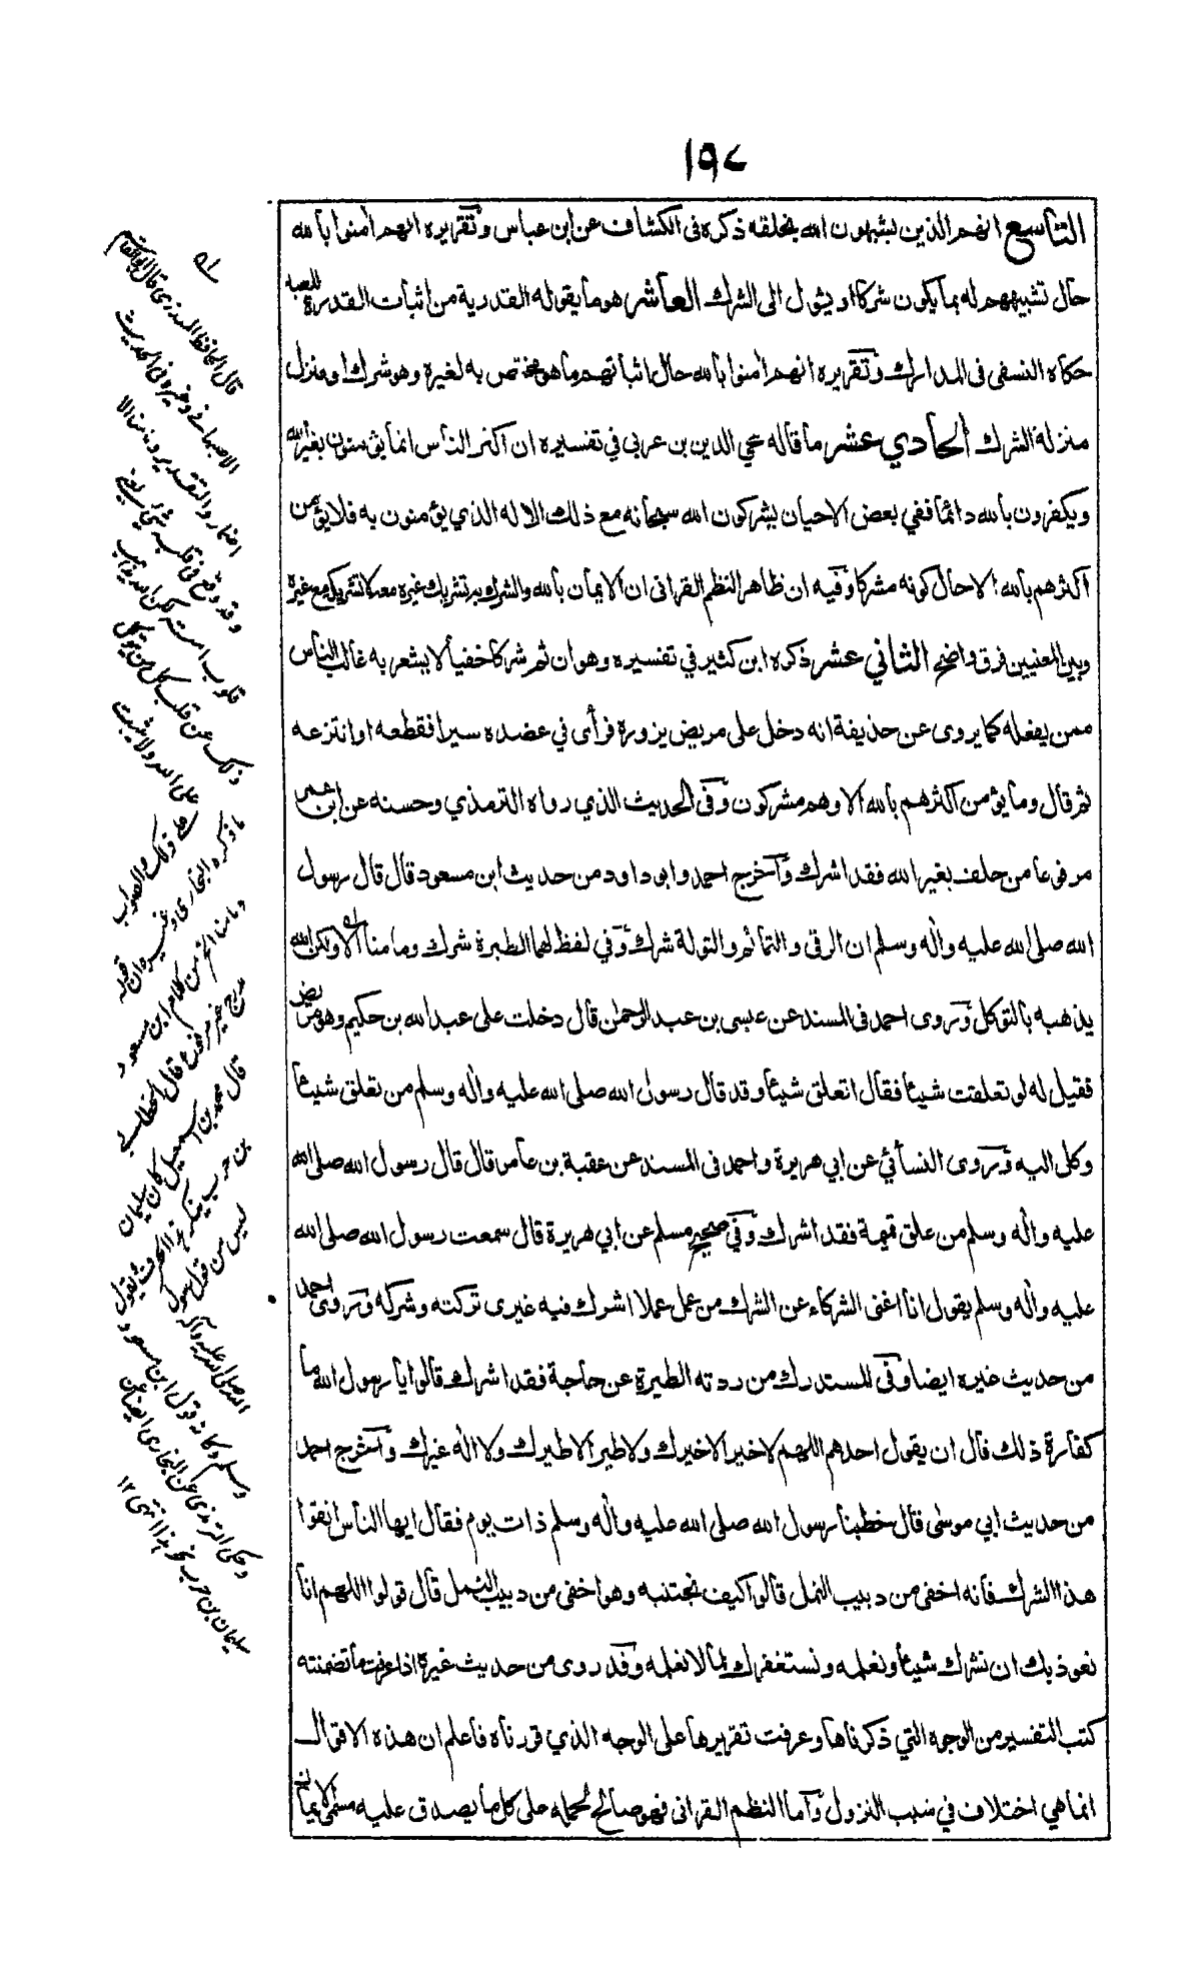 ١٩٧
التاسع انهم الذين يشبهون الله بخلقه ذكره فى الكشاف عن ابن عباس وتقريره انهم امنوا بالله
حال تشبيههم له بما يكون شركا او يئول الى الشرك العاشر هو ما يقوله القدرية من اثبات القدرة للعبد
حكاه النسفى فى المدارك وتقريره انهم امنوا بالله حال اثباتهم ما هو مختص به لغيره وهو شرك او منزل
منزلة الشرك الحادي عشر ما قاله محي الدين بن عربى في تفسيره ان اكثر الناس انما يؤمنون بغير الله
ويكفرون بالله دائما ففي بعض الاحيان يشركون الله سبحانه مع ذلك الاله الذي يؤمنون به فلا يؤمن
اكثرهم بالله الا حال كونه مشركا وفيه ان ظاهر النظم القرانى ان الايمان بالله والشرك بتشريك غيره معه لا تشريكه مع غيره
وبين المعنيين فرق واضح الثاني عشر ذكره ابن كثير في تفسيره وهو ان ثم شركا خفيا لا يشعر به غالب الناس
ممن يفعله كما يروى عن حذيفة انه دخل على مريض يزوره فرأى في عضده سيرا فقطعه او انتزعه
ثم قال وما يؤمن اكثرهم بالله الا وهم مشركون وفى الحديث الذي رواه الترمذي وحسنه عن ابن عمر
مرفوعا من حلف بغير الله فقد اشرك واخرج احمد وابو داود من حديث ابن مسعود قال قال رسول
الله صلى الله عليه واله وسلم ان الرقى والتمائم والتولة شرك وفي لفظ لهما الطيرة شرك وما منا الا ولكن الله
يذهبه بالتوكل وروى احمد فى المسند عن عيسى بن عبد الرحمان قال دخلت على عبد الله بن حكيم وهو مريض
فقيل له لو تعلقت شيئا فقال اتعلق شيئا وقد قال رسول الله صلى الله عليه واله وسلم من تعلق شيئا
وكل اليه وروى النسائي عن ابي هريرة واحمد فى المسند عن عقبة بن عامر قال قال رسول الله صلى الله
عليه واله وسلم من علق تميمة فقد اشرك وفي صحيح مسلم عن ابي هريرة قال سمعت رسول الله صلى الله
عليه واله وسلم يقول انا اغنى الشركاء عن الشرك من عمل عملا اشرك فيه غيرى تركته وشركه وروى احمد
من حديث غيره ايضا وفى المستدرك من ردته الطيرة عن حاجة فقد اشرك قالوا يا رسول الله ما
كفارة ذلك قال ان يقول احدهم اللهم لا خير الا خيرك ولا طير الا طيرك ولا اله غيرك واخرج احمد
من حديث ابي موسى قال خطبنا رسول الله صلى الله عليه واله وسلم ذات يوم فقال ايها الناس اتقوا
هذا الشرك فانه اخفى من دبيب النمل قالوا كيف نجتنبه وهو اخفى من دبيب النمل قال قولوا اللهم انا
نعوذ بك ان نشرك شيئا ونعلمه ونستغفرك لما لا نعلمه وقد روى من حديث غيره اذا عرفت ما تضمنته
كتب التفسير من الوجوه التي ذكرناها وعرفت تقريرها على الوجه الذي قررناه فاعلم ان هذه الاقوال
انما هي اختلاف في سبب النزول واما النظم القرانى فهو صالح لحمله على كل ما يصدق عليه مسمى الايمان
قال الحافظ المنذرى قال ابو القاسم
الاصبهانى وغيره وفى الحديث
اضمار والتقدير وما منا الا
وقد وقع فى قلبه شئ يعنى
قلوب امته لكن الله يذهب
ذلك عن قلب كل من يتوكل
على الله ولا يثبت
على ذلك والصواب
ما ذكره البخارى وغيره ان قوله
وما منا الخ من كلام ابن مسعود
مدرج غير مرفوع قال الخطابى
قال محمد بن اسمعيل كان سليمان
بن حرب ينكر هذا الحرف ويقول
ليس من قول رسول
الله صلى الله عليه واله
وسلم وكانه قول ابن مسعود
وحكى الترمذى عن البخارى ايضا عن
سليمان بن حرب نحو هذا انتهى ١٢